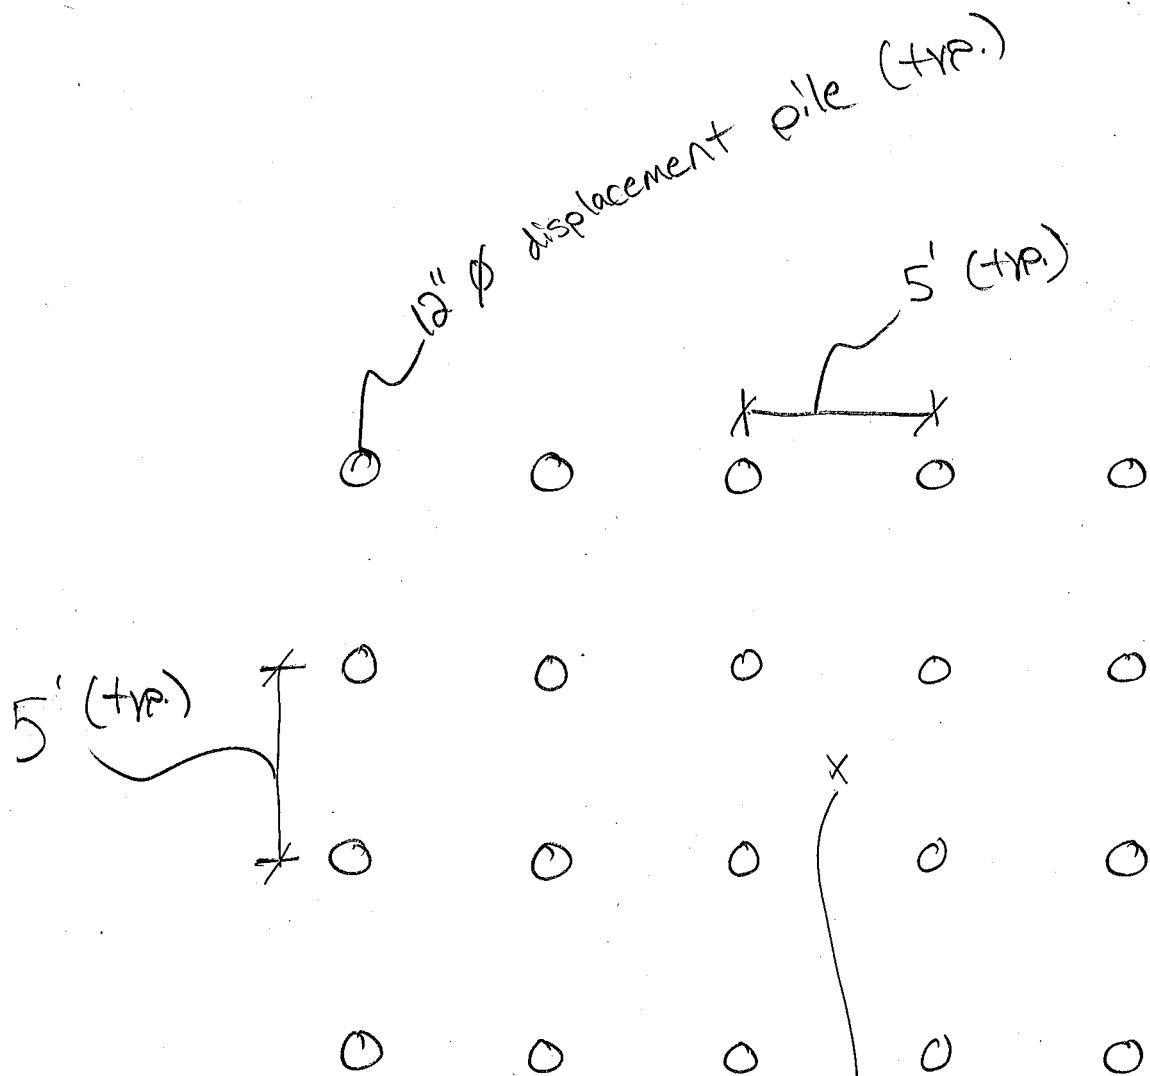 12" ϕ displacement pile (typ.)
5' (typ.)
5' (typ.)
X